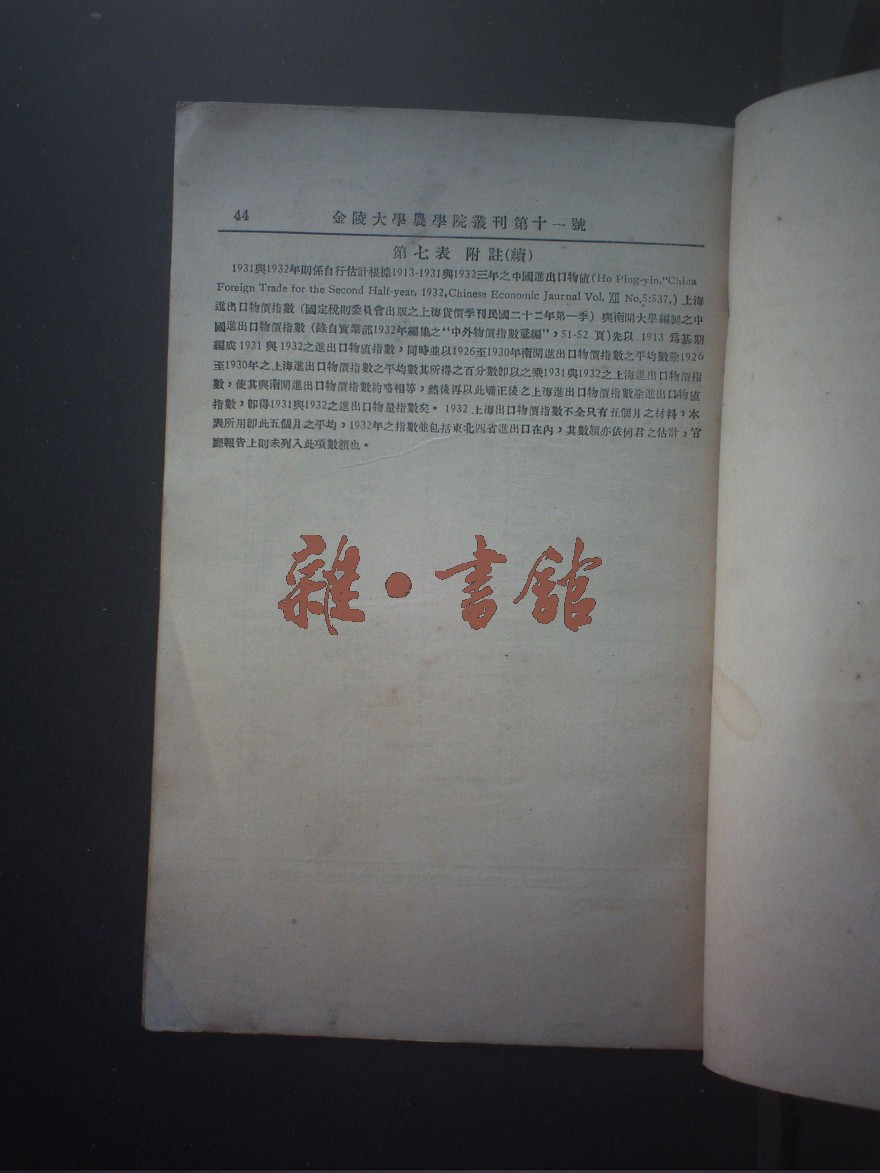 44
金陵大學農學院叢刊第十一號
第七表 附註(續)
1931與1932年則係自行估計根據1913-1931與1932三年之中國進出口物値(Ho Ping-yin,"China
Foreign Trade for the Second Half-year, 1932, Chinese Economic Jaurnal Vol, XII No,5:537,) 上海
進出口物價指數(國定稅則委員會出版之上海貨價季刊民國二十二年第一季)與南開大學編製之中
國進出口物價指數(錄自實業部1932年編集之"中外物價指數彙編",51-52 頁)先以 1913 爲基期
編成1931與1932之進出口物値指數,同時並以1926至1930年南開進出口物價指數之平均數除1926
至1930年之上海進出口物價指數之平均數其所得之百分數卽以之乘1931與1932之上海進出口物價指
數,使其與南開進出口物價指數約略相等,然後再以此矯正後之上海進出口物價指數除進出口物値
指數,卽得1931與1932之進出口物量指數矣。1932 上海出口物價指數不全只有五個月之材料,本
表所用卽此五個月之平均,1932年之指數並包括東北四省進出口在內,其數額亦依何君之估計,官
廳報告上則未列入此項數額也。
雜·書館